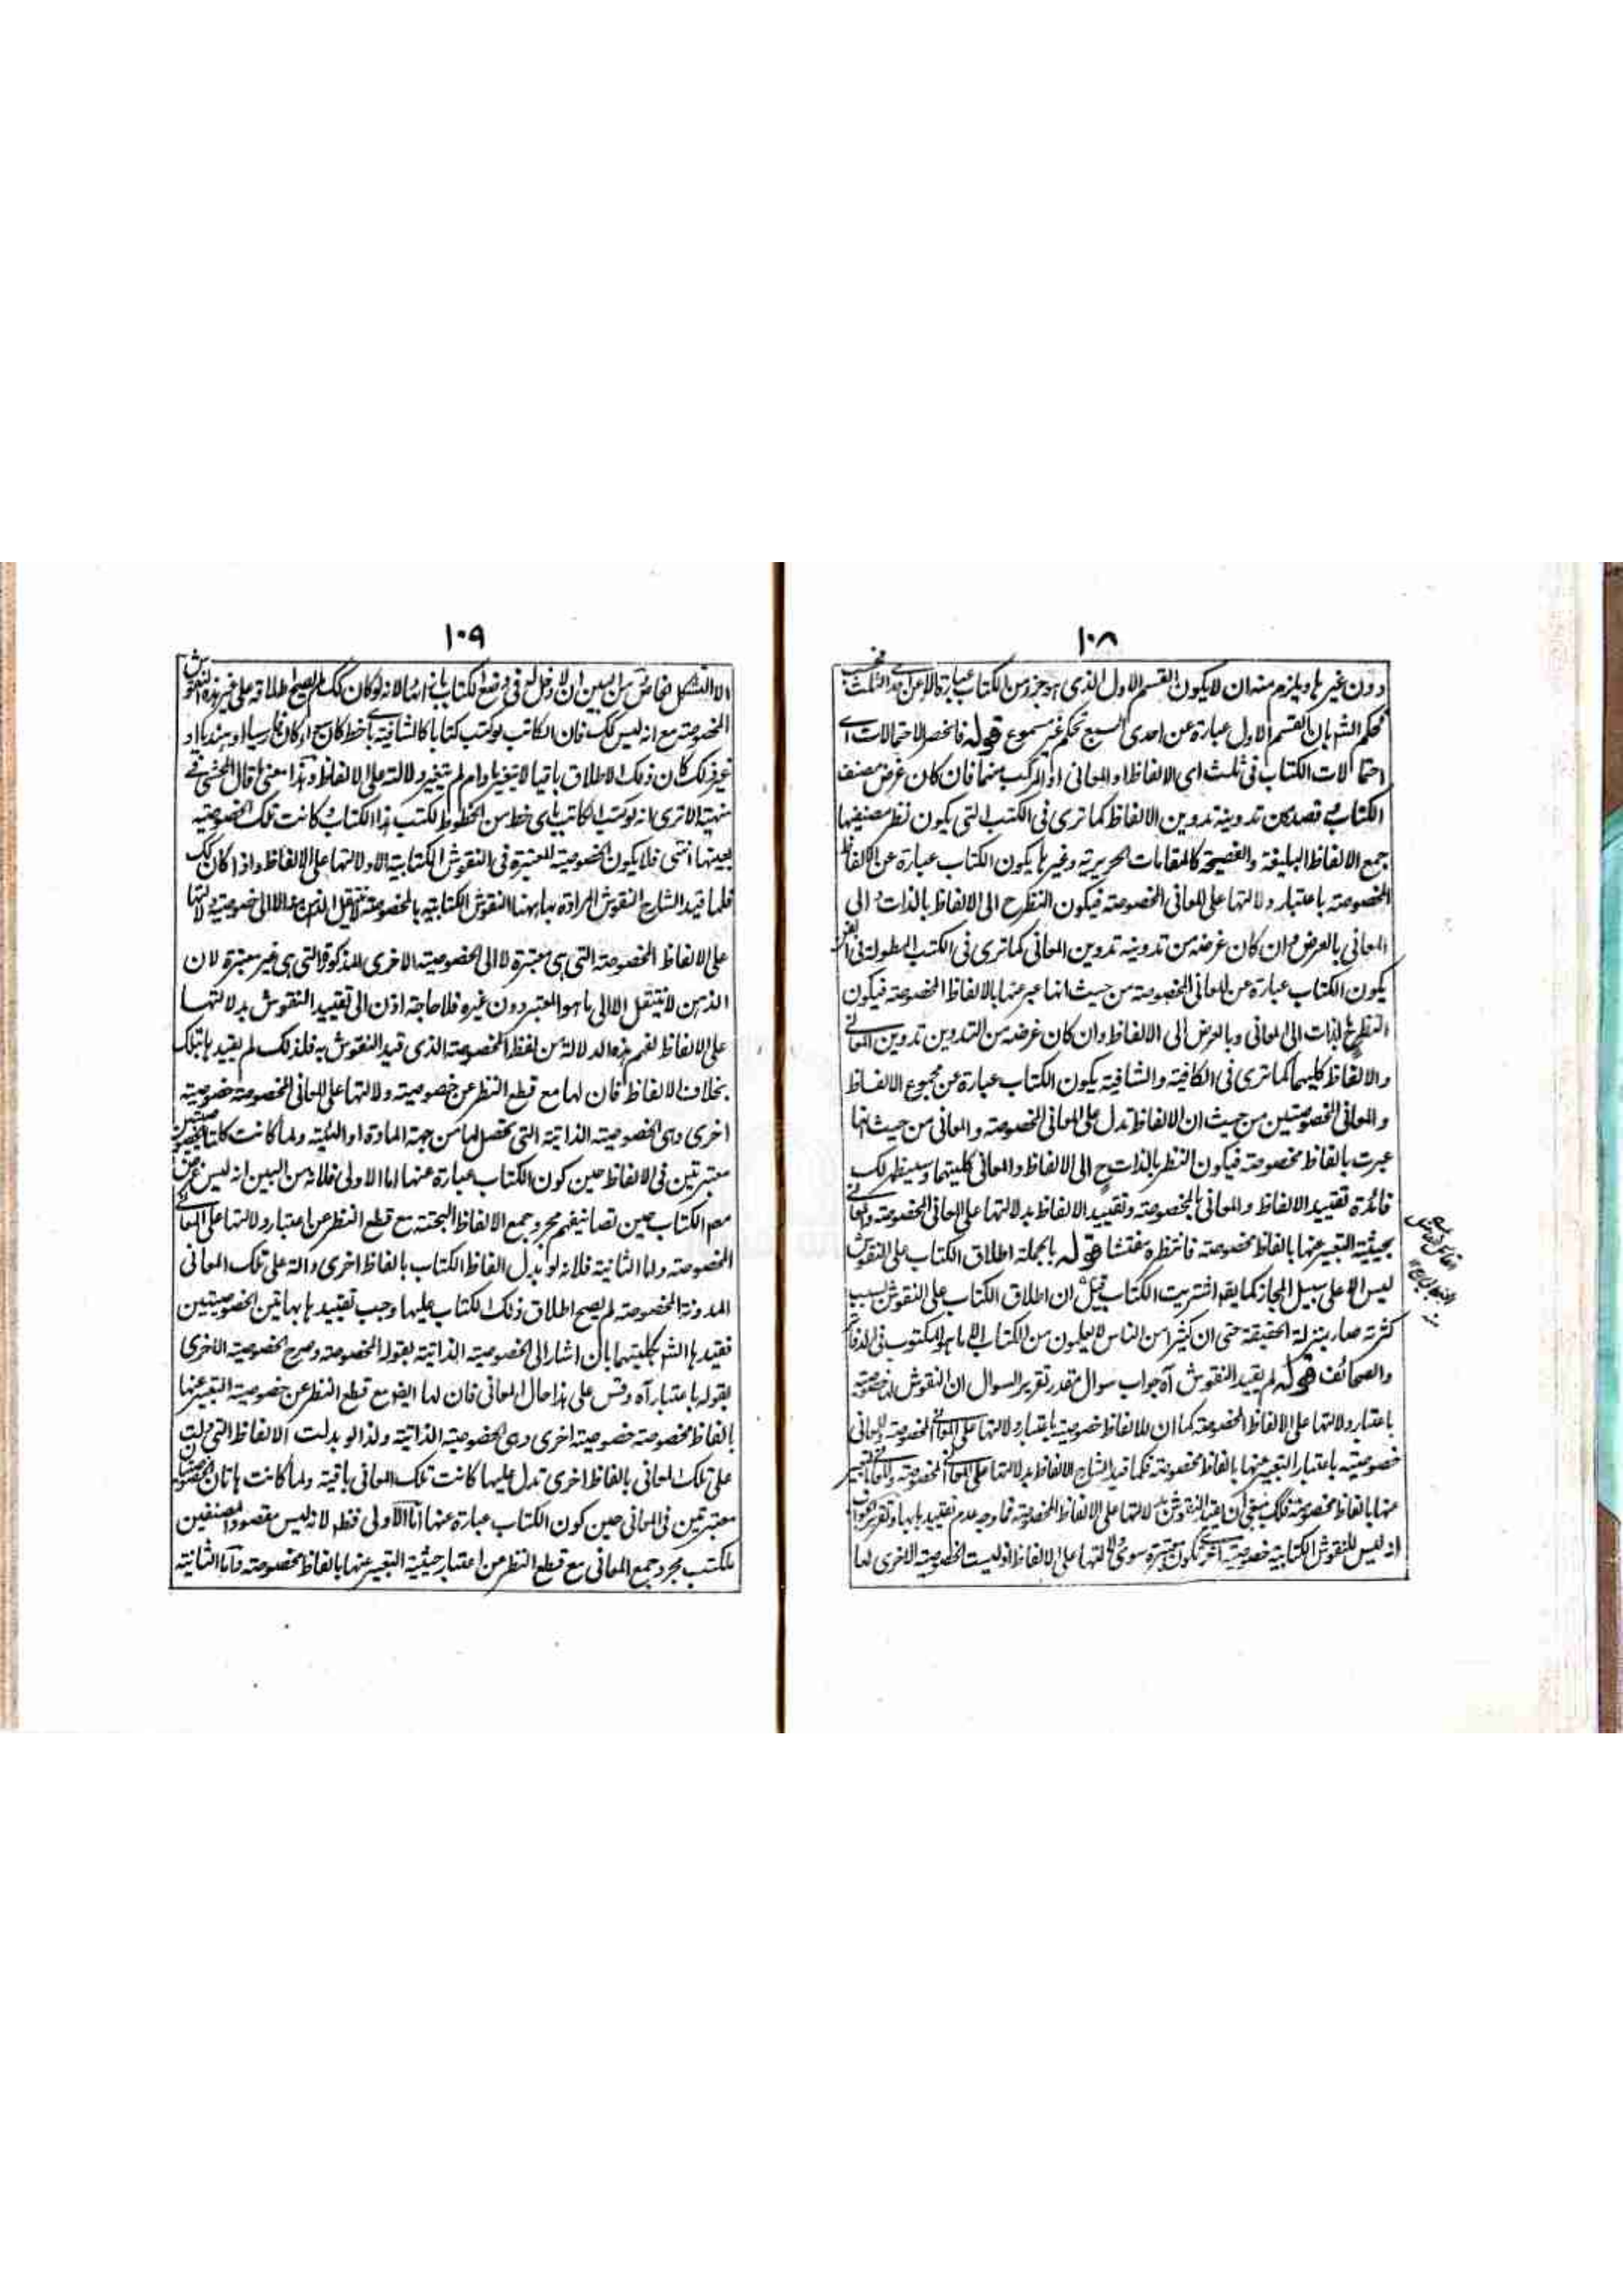 ١٠٨
دون غيرها ويلزم منه ان لا يكون القسم الاول الذى هو جزء من الكتاب عبارة الا عن هذه الثلث
فحكم الشه بان القسم الاول عبارة عن احدى السبع تحكم غير مسموع قوله فانحصر الاحتمالات اى
احتمالات الكتاب فى ثلث اى الالفاظ او المعانى او المركب منهما فان كان غرض مصنف
الكتاب وقصده من تدوينه تدوين الالفاظ كما ترى فى الكتب التى يكون نظر مصنفيها
جمع الالفاظ البليغة والفصيحة كالمقامات الحريرية وغيرها يكون الكتاب عبارة عن الالفاظ
المخصوصة باعتبار دلالتها على المعانى المخصوصة فيكون النظر ح الى الالفاظ بالذات والى
المعانى بالعرض وان كان غرضه من تدوينه تدوين المعانى كما ترى فى الكتب المطولة فى الفن
يكون الكتاب عبارة عن المعانى المخصوصة من حيث انها عبر عنها بالالفاظ المخصوصة فيكون
النظر ح بالذات الى المعانى وبالعرض الى الالفاظ وان كان غرضه من التدوين تدوين المعانى
والالفاظ كليهما كما ترى فى الكافية والشافية يكون الكتاب عبارة عن مجموع الالفاظ
والمعانى المخصوصتين من حيث ان الالفاظ تدل على المعانى المخصوصة والمعانى من حيث انها
عبرت بالفاظ مخصوصة فيكون النظر بالذات ح الى الالفاظ والمعانى كليتهما وسيظهر لك
فائدة تقييد الالفاظ والمعانى بالمخصوصة وتقييد الالفاظ بدلالتها على المعانى المخصوصة والمعانى
بحيثية التعبير عنها بالفاظ مخصوصة فانتظره مفتشا قوله بالجملة اطلاق الكتاب على النقوش
ليس الا على سبيل المجاز كما يقه اشتريت الكتاب قيل ان اطلاق الكتاب على النقوش بسبب
كثرته صار بمنزلة الحقيقة حتى ان كثيرا من الناس لا يعلمون من الكتاب الا ما هو المكتوب فى الدفاتر
والصحائف قوله لم يقيد النقوش آه جواب سوال مقدر تقرير السوال ان النقوش لها خصوصية
باعتبار دلالتها على الالفاظ المخصوصة كما ان للالفاظ خصوصية باعتبار دلالتها على المعانى المخصوصة وللمعانى
خصوصية باعتبار التعبير عنها بالفاظ مخصوصة فكما قيد الشارح الالفاظ بدلالتها على المعانى المخصوصة والمعانى بالتعبير
عنها بالفاظ مخصوصة فلك ينبغى ان يقيد النقوش بدلالتها على الالفاظ المخصوصة فما وجه عدم تقييدها بها وتقرير الجواب
اذ ليس للنقوش الكتابية خصوصية اخرى تكون معتبرة سوى دلالتها على الالفاظ اذ ليست الخصوصية الاخرى لها
١٠٩
الا التشكل الخاص ومن البين ان لا دخل له فى وضع الكتاب بازائها لانه لو كان كك لم يصح اطلاقه على غير هذه النقوش
المخصوصة مع انه ليس كك فان الكاتب لو كتب كتابا كالشافية باى خط كان سواء كان فارسيا او هنديا او
غير ذلك كان ذلك الاطلاق باقيا لا يتغير ما دام لم يتغير دلالته على الالفاظ وهذا معنى ما قال المحشى فى
منهيته الا ترى انه لو كتب الكاتب باى خط من الخطوط لكتب هذا الكتاب كانت تلك الخصوصية
بعينها انتهى فلا يكون الخصوصية المعتبرة فى النقوش الكتابية الا دلالتها على الالفاظ واذا كان كك
فلما قيد الشارح النقوش المرادة بها ههنا النقوش الكتابية بالمخصوصة لا ينتقل الذهن منها الا الى خصوصية دلالتها
على الالفاظ المخصوصة التى هى معتبرة لا الى الخصوصية الاخرى المذكورة التى هى غير معتبرة لان
الذهن لا ينتقل الا الى ما هو المعتبر دون غيره فلا حاجة اذن الى تقييد النقوش بدلالتها
على الالفاظ لفهم هذه الدلالة من لفظ المخصوصة الذى قيد النقوش به فلذلك لم يقيدها بتلك
بخلاف الالفاظ فان لها مع قطع النظر عن خصوصية دلالتها على المعانى المخصوصة خصوصية
اخرى وهى الخصوصية الذاتية التى تحصل لها من جهة المادة او الهيئة ولما كانت كلتا الخصوصيتين
معتبرتين فى الالفاظ حين كون الكتاب عبارة عنها اما الاولى فلانه من البين انه ليس غرض
مصه الكتاب حين تصانيفهم مجرد جمع الالفاظ البحتة مع قطع النظر عن اعتبار دلالتها على المعانى
المخصوصة واما الثانية فلانه لو بدل الفاظ الكتاب بالفاظ اخرى دالة على تلك المعانى
المدونة المخصوصة لم يصح اطلاق ذلك الكتاب عليها وجب تقييدها بهاتين الخصوصيتين
فقيدها الشه بكليتهما بان اشار الى الخصوصية الذاتية بقوله المخصوصة وصرح بخصوصية الاخرى
بقوله باعتبار آه وقس على هذا حال المعانى فان لها ايضه مع قطع النظر عن خصوصية التعبير عنها
بالفاظ مخصوصة خصوصية اخرى وهى الخصوصية الذاتية ولذا لو بدلت الالفاظ التى دلت
على تلك المعانى بالفاظ اخرى تدل عليها كانت تلك المعانى باقية ولما كانت هاتان الخصوصيتان
معتبرتين فى المعانى حين كون الكتاب عبارة عنها اما الاولى فقط لانه ليس مقصود المصنفين
للكتب مجرد جمع المعانى مع قطع النظر عن اعتبار حيثية التعبير عنها بالفاظ مخصوصة واما الثانية